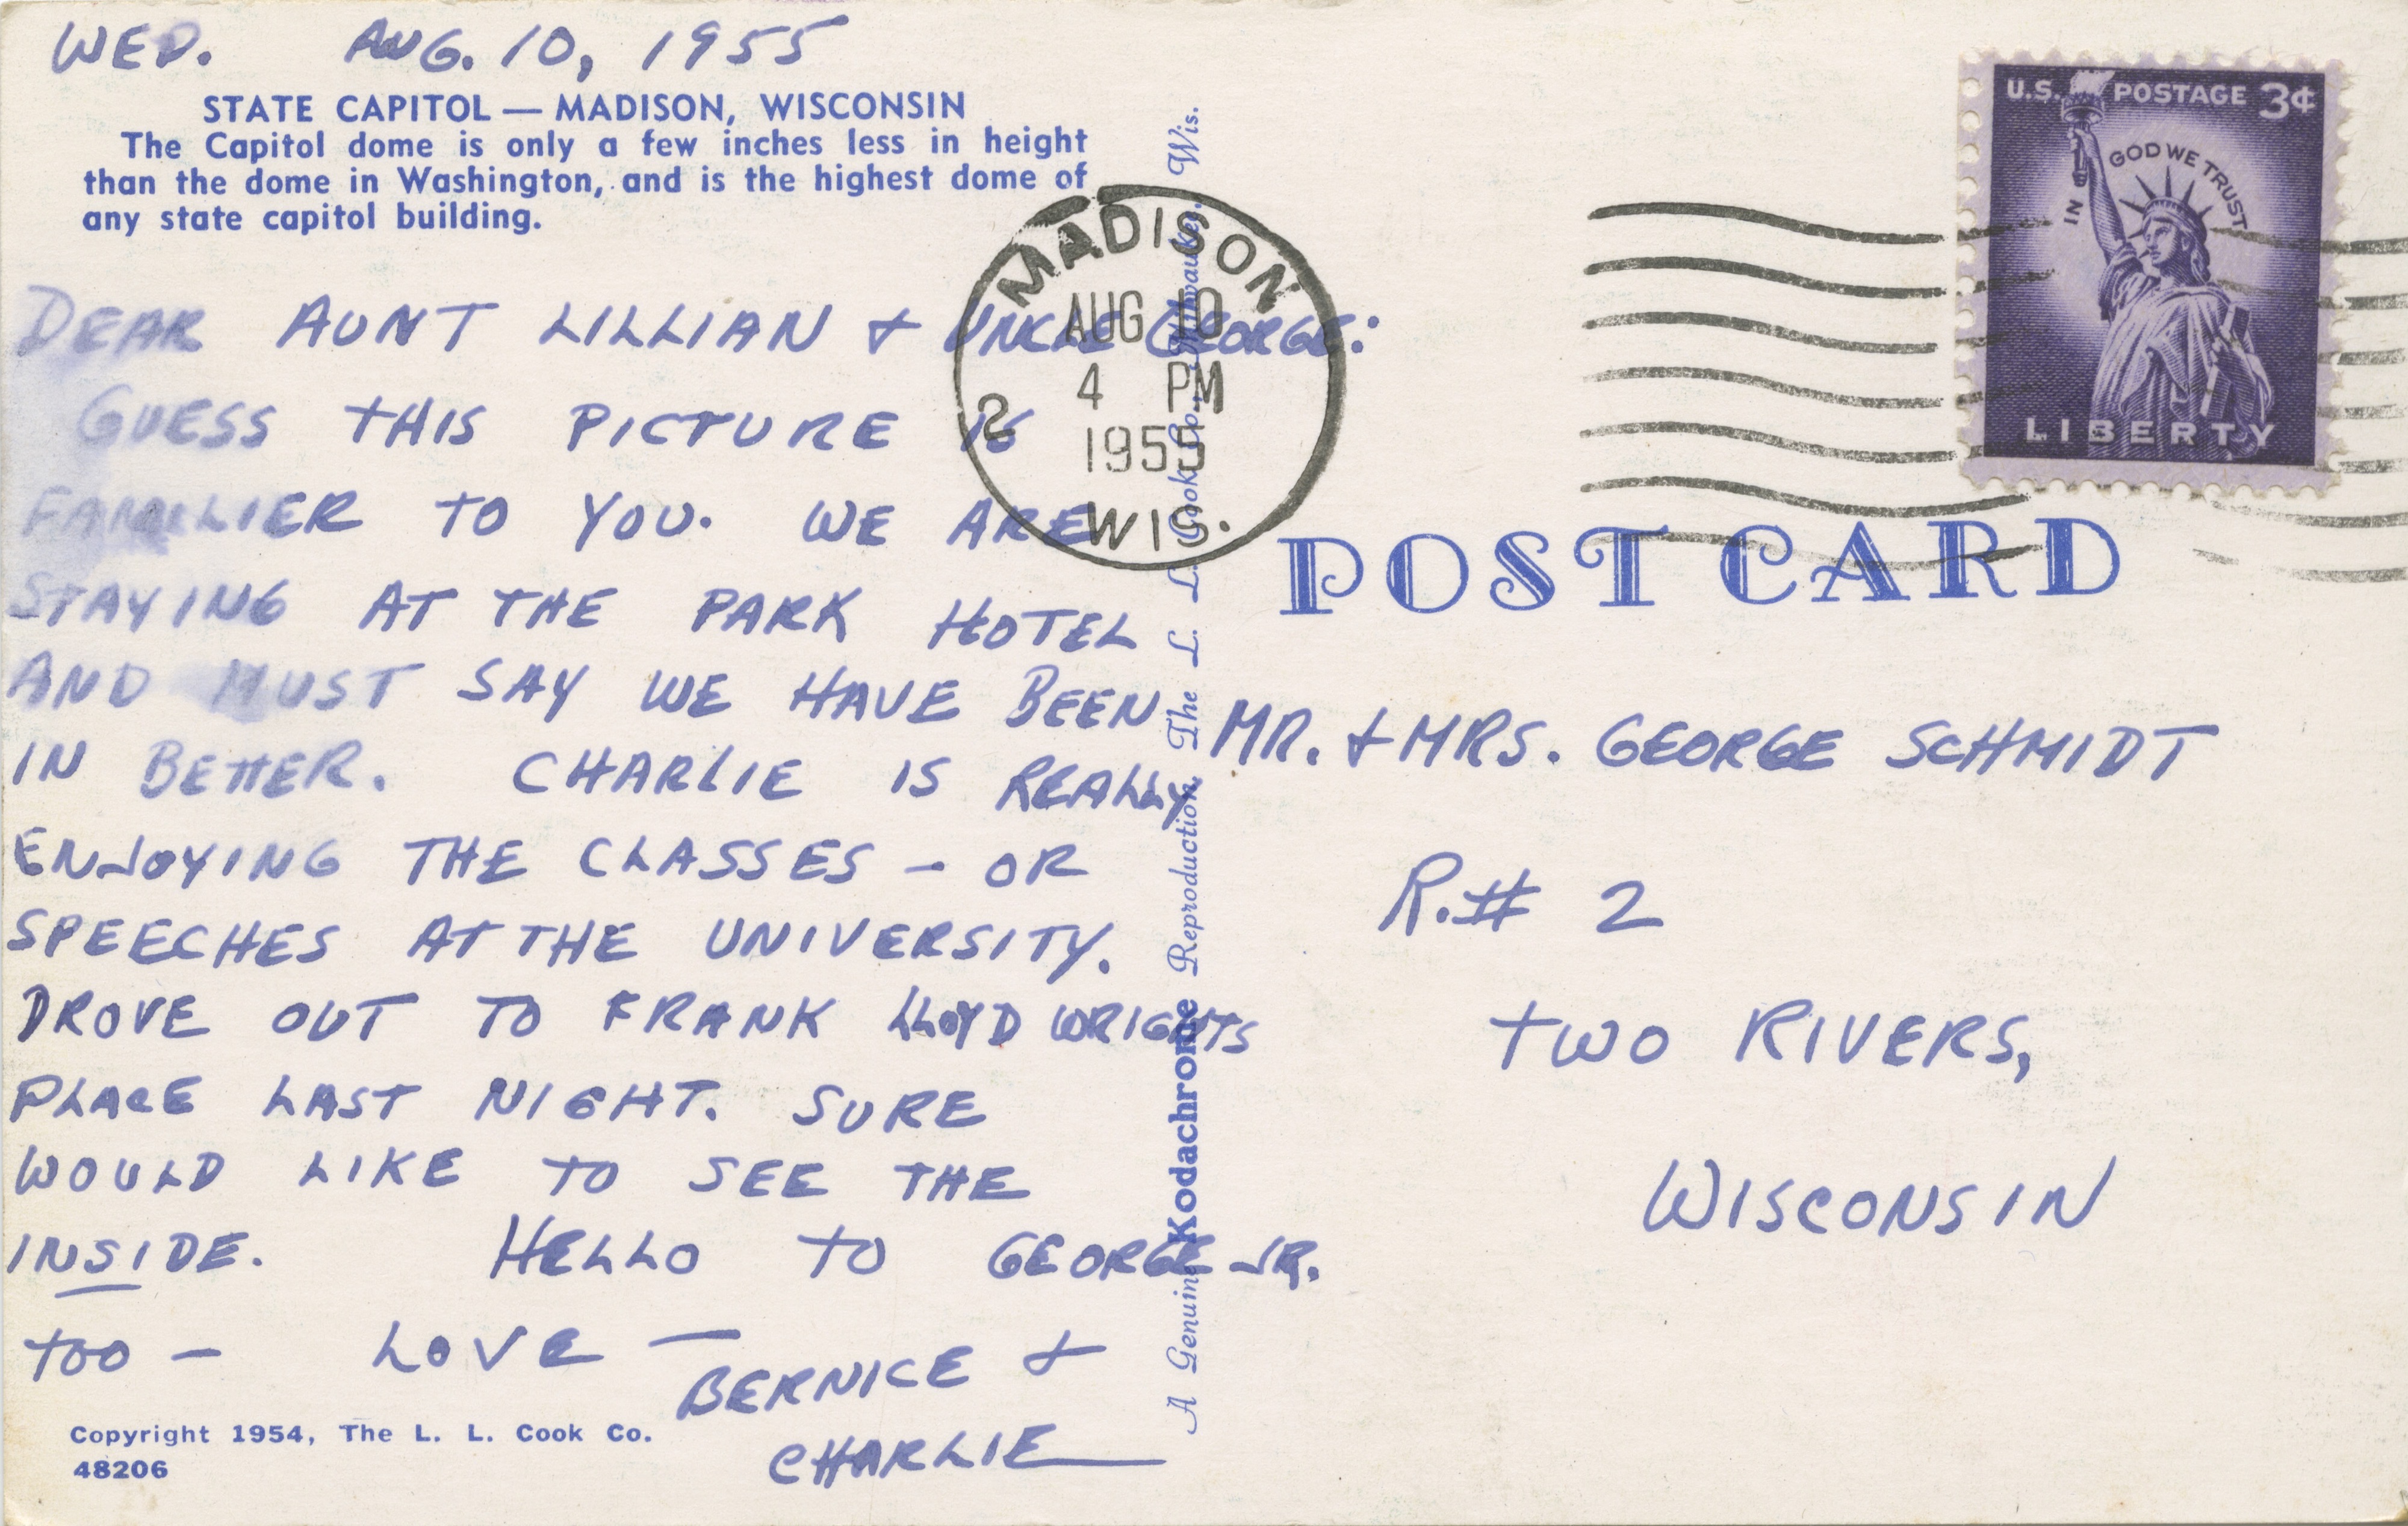 WED. AUG. 10, 1955
STATE CAPITOL — MADISON, WISCONSIN
The Capitol dome is only a few inches less in height
than the dome in Washington, and is the highest dome of
any state capitol building.
DEAR AUNT LILLIAN + UNCLE GEORGE:
GUESS THIS PICTURE IS
FAMILLIER TO YOU. WE ARE
STAYING AT THE PARK HOTEL
AND MUST SAY WE HAVE BEEN
IN BETTER. CHARLIE IS REALLY
ENJOYING THE CLASSES - OR
SPEECHES AT THE UNIVERSITY.
DROVE OUT TO FRANK LLOYD WRIGHTS
PLACE LAST NIGHT. SURE
WOULD LIKE TO SEE THE
INSIDE. HELLO TO GEORGE JR.
TOO - LOVE —
BERNICE +
CHARLIE
Copyright 1954, The L. L. Cook Co.
48206
A Genuine Kodachrome Reproduction, The L. L. Cook Co., Milwaukee, Wis.
MADISON
AUG 10
4 PM
2
1955
WIS.
U.S. POSTAGE 3¢
IN GOD WE TRUST
LIBERTY
POST CARD
MR. + MRS. GEORGE SCHMIDT
R.# 2
TWO RIVERS,
WISCONSIN